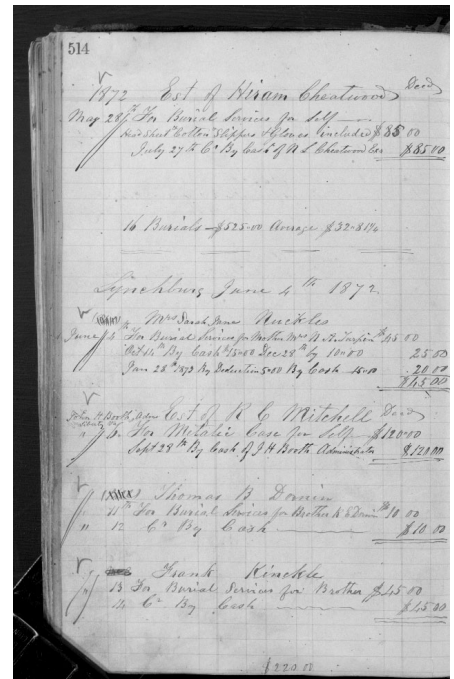 514
1872 Est of Hiram Cheatwood Decd
May 28th For Burial Services for Self
Head Sheet Cotton Slippers & Gloves included $85 00
July 27th Cr By Cash of A L Cheatwood Exr $85.00
16 Burials — $525.00 Average $32-81¼
Lynchburg June 4th 1872
Mrs Sarah Jane Nuckles
June 5th For Burial Services for Brother Wm 45.00
Oct 14th By Cash $15.00 Dec 28th by 10.00 25 00
Jan 28th 1873 By Deduction 5.00 By Cash 15.00 20.00
$45.00
John H Booth, Est of R C Mitchell Decd
" 6 For Metalic Case for Self $120.00
Sept 28th By Cash of J H Booth Administrator $120.00
Thomas B
" 11th For Burial Services for Brother 10 00
" 12 Cr By Cash $10.00
Frank Kinckle
" 13 For Burial Services for Brother $45.00
" 14 Cr By Cash $45.00
$220.00